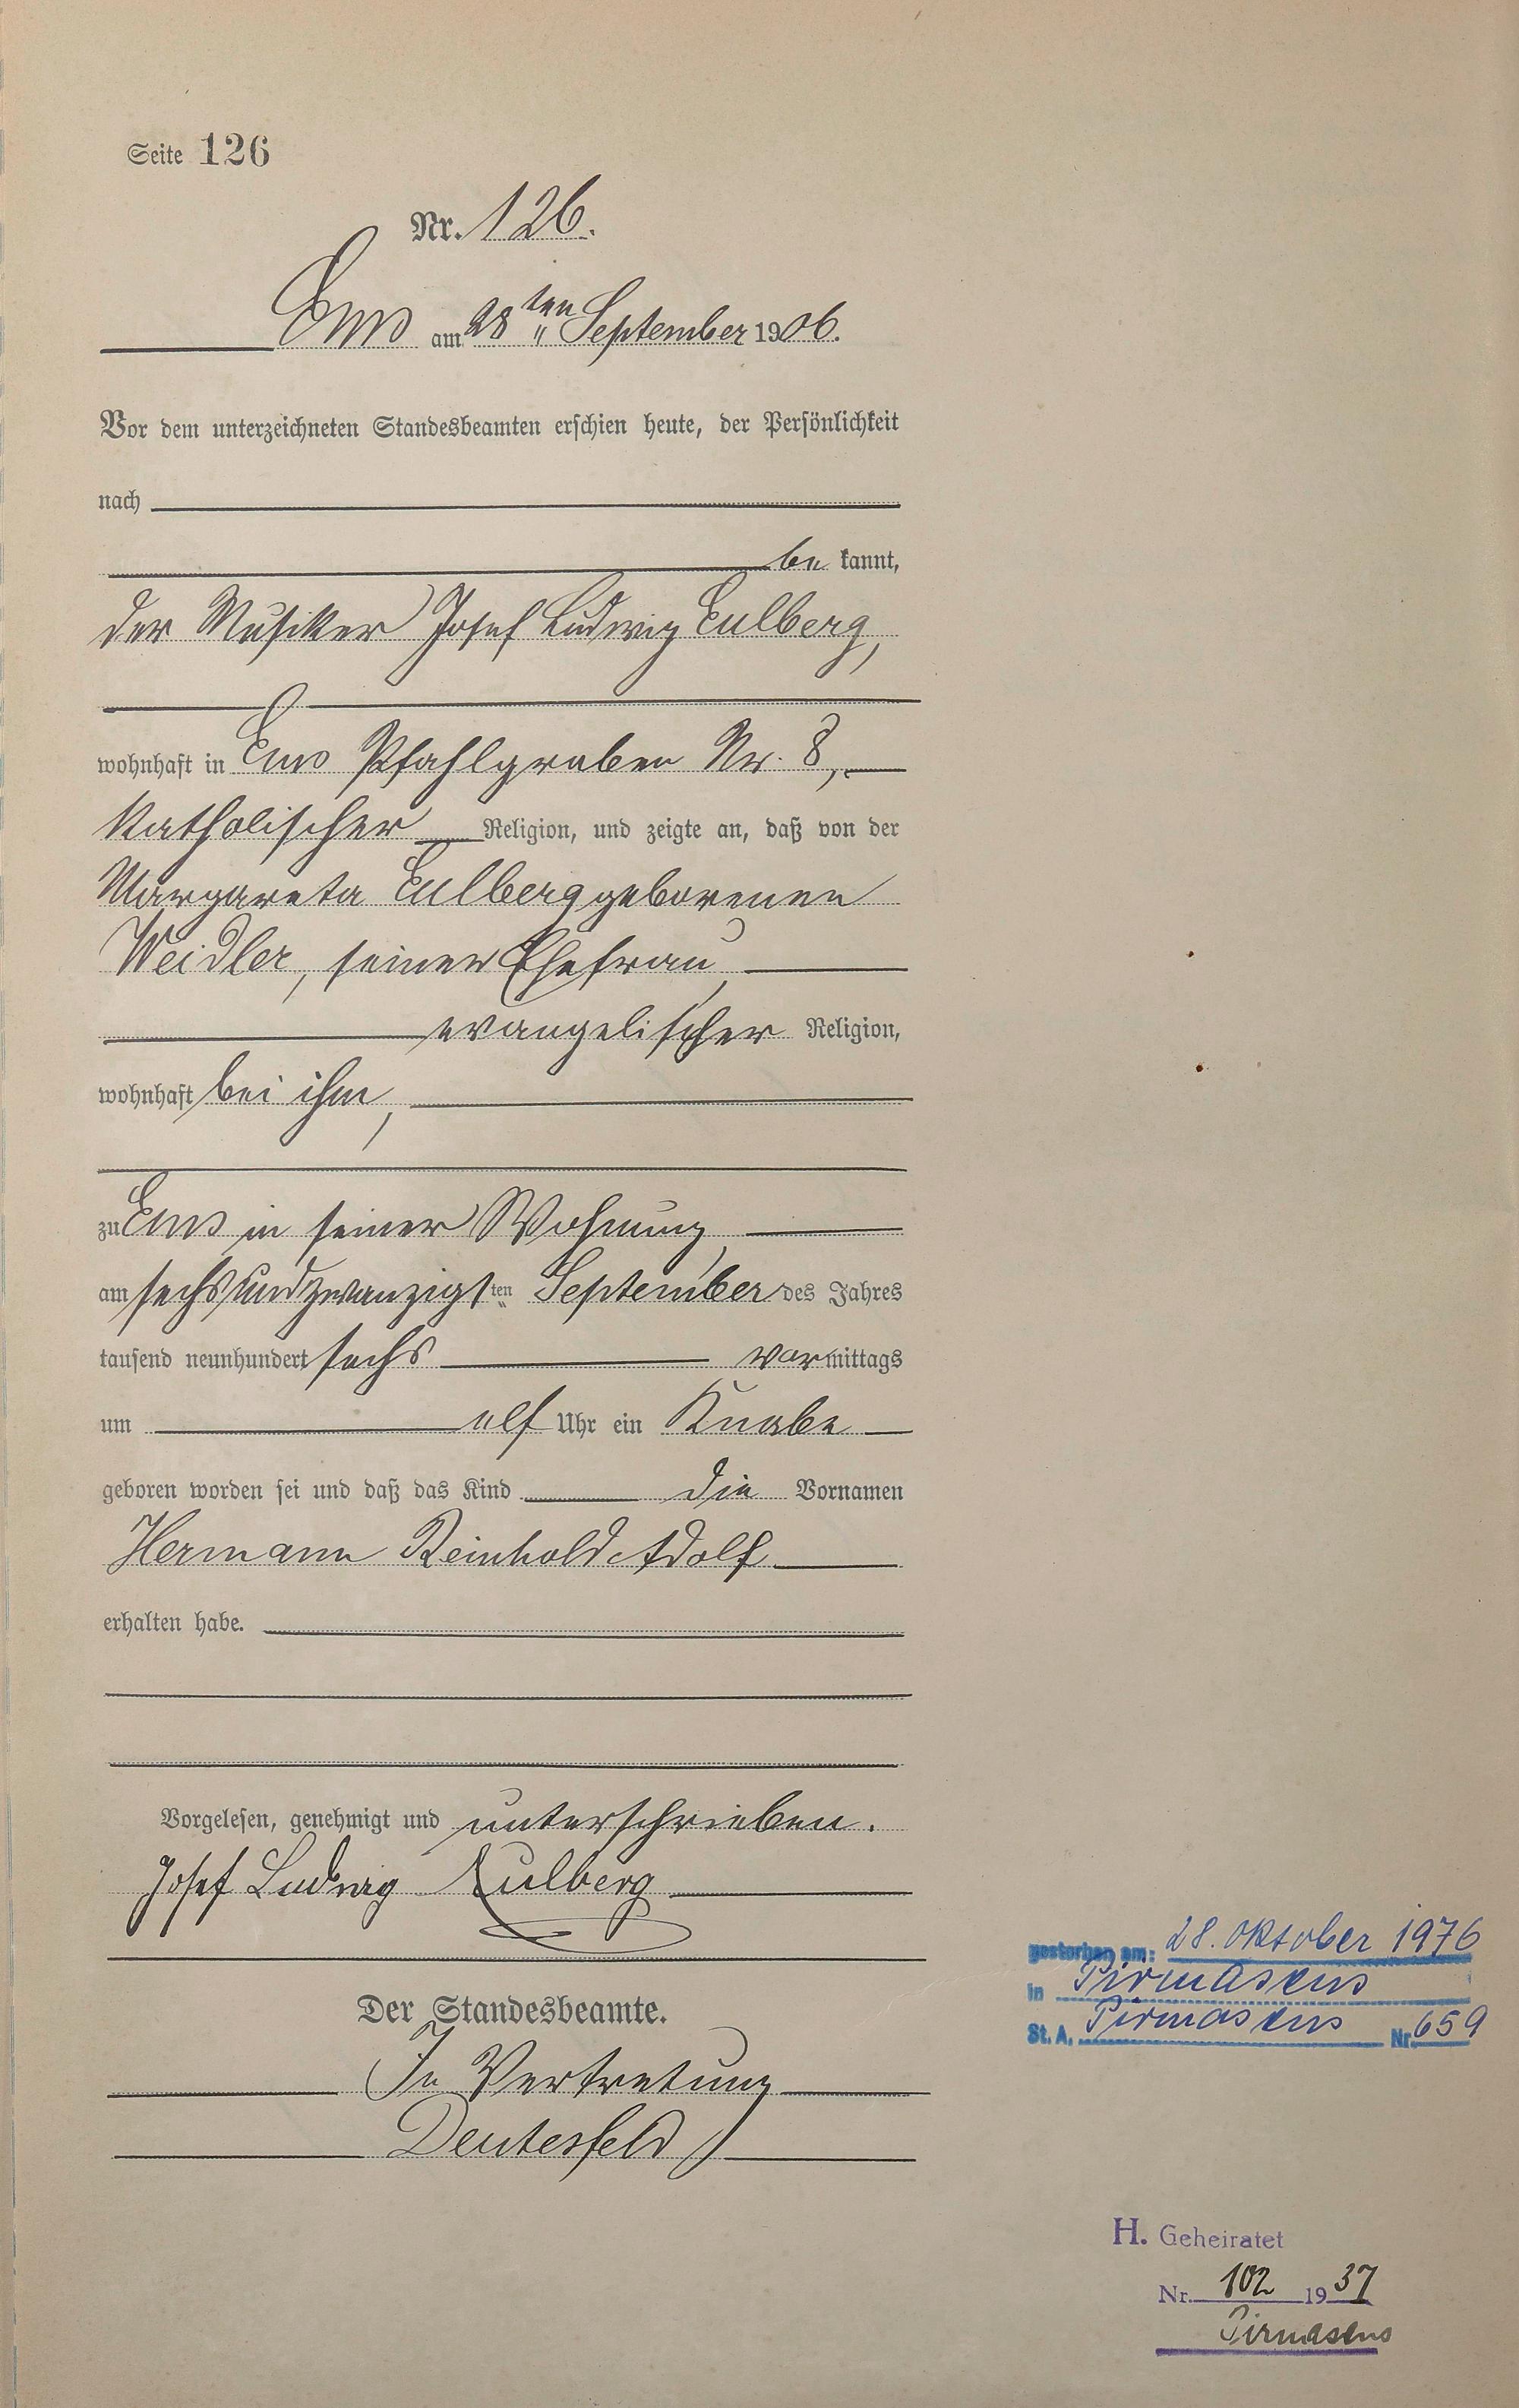 Seite 126
Nr. 126.
Ems am 28ten September 1906.
Vor dem unterzeichneten Standesbeamten erschien heute, der Persönlichkeit
nach
be kannt,
der Musiker Josef Ludwig Eulberg,
wohnhaft in Ems Pfahlgraben Nr. 8,
katholischer Religion, und zeigte an, daß von der
Margareta Eulberg geborenen
Weidler, seiner Ehefrau,
evangelischer Religion,
wohnhaft bei ihm,
zu Ems in seiner Wohnung,
am sechsundzwanzigsten September des Jahres
tausend neunhundert sechs vormittags
um elf Uhr ein Knabe
geboren worden sei und daß das Kind die Vornamen
Hermann Reinhold Adolf
erhalten habe.
Vorgelesen, genehmigt und unterschrieben.
Josef Ludwig Eulberg
Der Standesbeamte.
In Vertretung
Deutesfeld
gestorben am: 28. Oktober 1976
in Pirmasens
St. A. Pirmasens Nr. 659
H. Geheiratet
Nr. 102 1937
Pirmasens